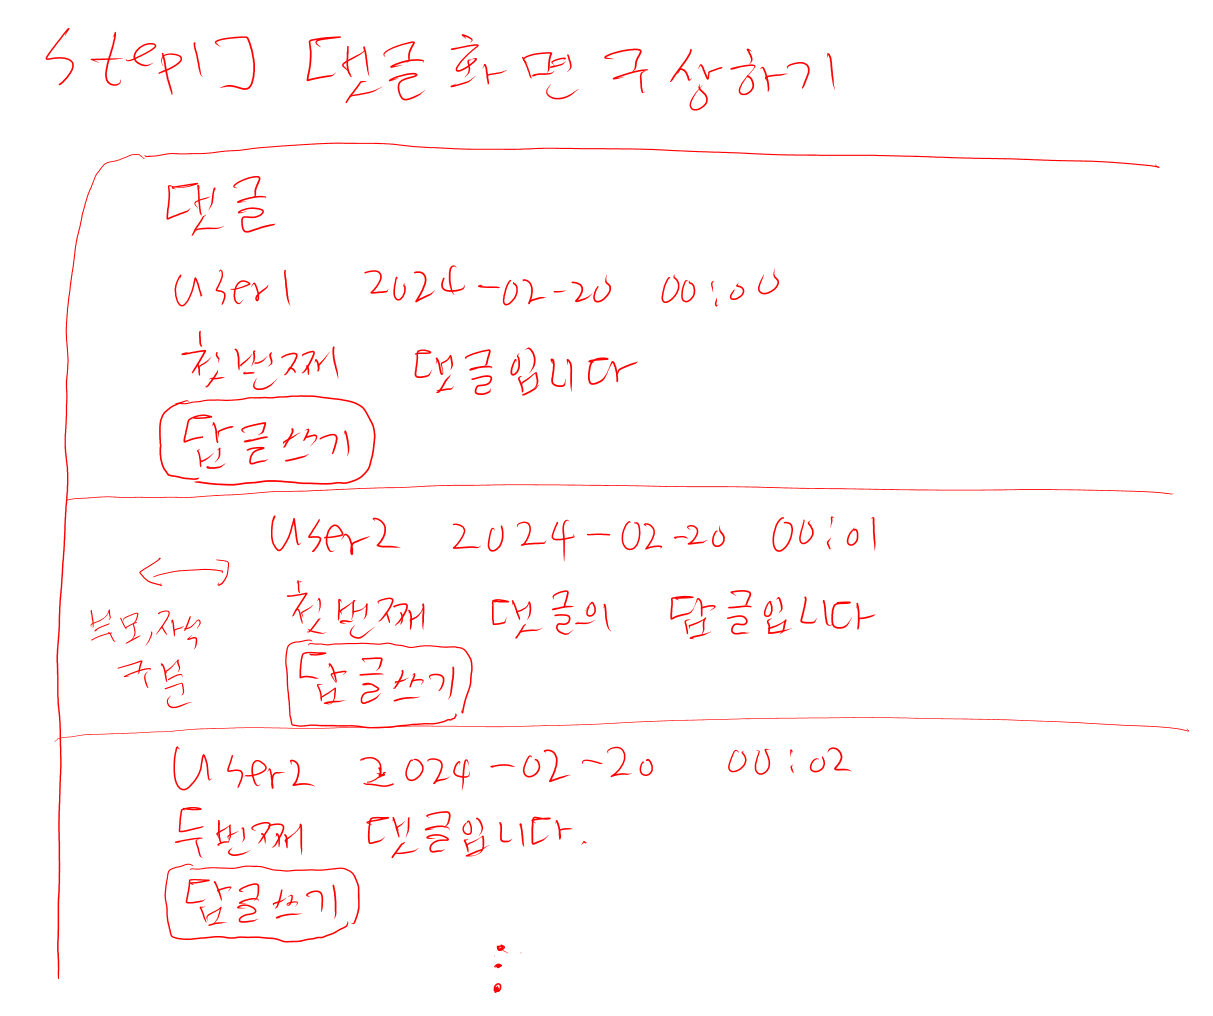 Step1] 댓글 화면 구상하기
댓글
User1 2024-02-20 00:00
첫번째 댓글입니다
답글쓰기
User2 2024-02-20 00:01
첫번째 댓글의 답글입니다
부모,자식
구분
답글쓰기
User2 2024-02-20 00:02
두번째 댓글입니다.
답글쓰기